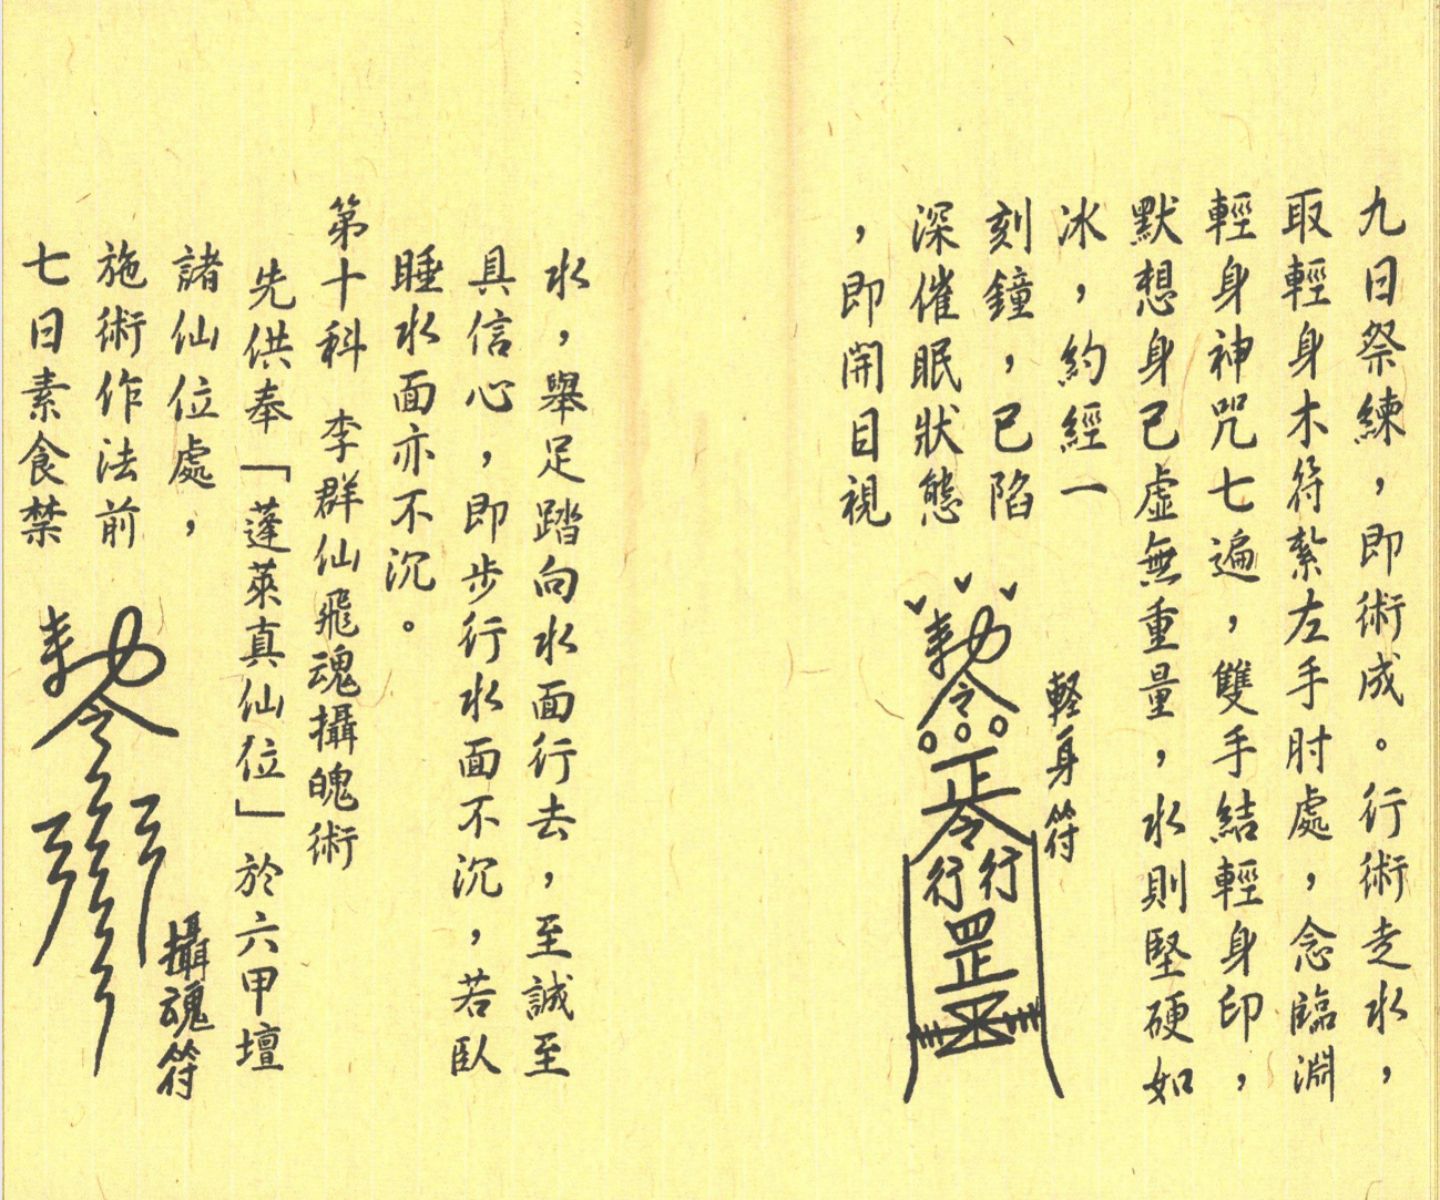 九日祭練，即術成。行術走水，
取輕身木符紮左手肘處，念臨淵
輕身神咒七遍，雙手結輕身印，
默想身已虛無重量，水則堅硬如
冰，約經一
刻鐘，已陷
深催眠狀態
，即開目視
軽身符
勅令
正令
行行
罡
水，舉足踏向水面行去，至誠至
具信心，即步行水面不沉，若臥
睡水面亦不沉。
第十科　李群仙飛魂攝魄術
先供奉「蓬萊真仙位」於六甲壇
諸仙位處，
施術作法前
七日素食禁
攝魂符
勅令